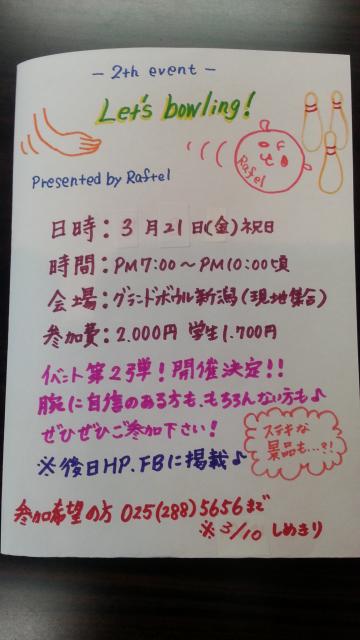 - 2th event -
Let's bowling!
Raftel
Presented by Raftel
日時:3月21日(金)祝日
時間:PM7:00〜PM10:00頃
会場:グランドボウル新潟(現地集合)
参加費:2.000円 学生1.700円
イベント第2弾!開催決定!!
腕に自信のある方も、もちろんない方も♪
ぜひぜひご参加下さい!
ステキな
景品も...?!
※後日HP.FBに掲載♪
参加希望の方 025(288)5656まで
※3/10 しめきり